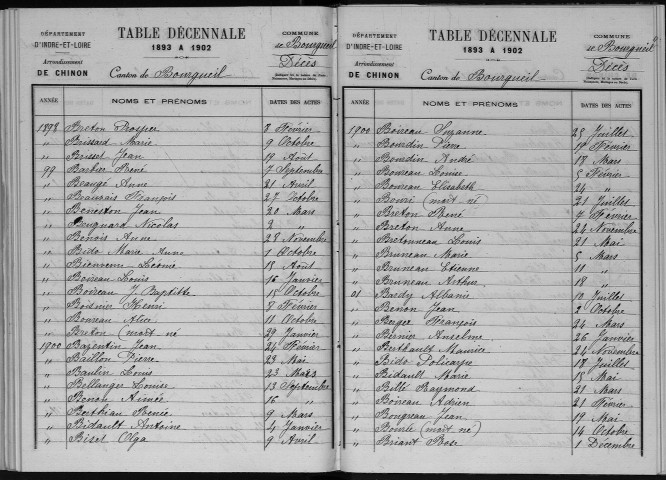 DÉPARTEMENT
D'INDRE-ET-LOIRE
Arrondissement
DE CHINON
TABLE DÉCENNALE
1893 A 1902
Canton de Bourgueil
COMMUNE
de Bourgueil
Décès
ANNÉE NOMS ET PRÉNOMS DATES DES ACTES
1898 Breton Prosper 8 Février
" Brissard Marie 9 Octobre
" Brisset Jean 19 Août
99 Barbier René 7 Septembre
" Beaugé Anne 21 Avril
" Beauvais François 27 Octobre
" Beneston Jean 20 Mars
" Benguard Nicolas 2 "
" Benois Anne 28 Novembre
" Bido Marie Anne 1 Octobre
" Bienvenu 15 Août
" Boireau Louis 16 Janvier
" Boireau J. Baptiste 15 Octobre
" Boidnier Henri 8 Février
" Boureau Alice 11 Octobre
" Breton (mort-né 29 Janvier
1900 Bazentin Jean 24 Février
" Baillon Pierre 28 Mai
" Baulin Louis 23 Mars
" Bellanger Louise 13 Septembre
" Benon Aimée 16 "
" Berthian Renée 9 Mars
" Bidault Antoine 4 Janvier
" Biset Olga 9 Avril
DÉPARTEMENT
D'INDRE-ET-LOIRE
Arrondissement
DE CHINON
TABLE DÉCENNALE
1893 A 1902
Canton de Bourgueil
COMMUNE
de Bourgueil
Décès
ANNÉE NOMS ET PRÉNOMS DATES DES ACTES
1900 Boireau Suzanne 25 Juillet
" Bourdin Pierre 14 Février
" Bourdin André 18 Mars
" Boureau Louise 5 Février
" Boureau Elisabeth 24 "
" Bouri (mort né 21 Juillet
" Breton René 7 Février
" Breton Anne 24 Novembre
" Bretonneau Louis 21 Mai
" Bruneau Marie 5 Mars
" Bruneau Etienne 11 "
" Bruneau Arthur 18 "
01 Bardy Albanie 10 Juillet
" Benon Jean 2 Octobre
" Berger François 24 Mars
" Bernier Anselme 26 Janvier
" Berthault Maurice 24 Novembre
" Bido Policarpe 18 Juillet
" Bidault Marie 15 Mai
" Billé Raymond 21 Mars
" Boireau Adrien 21 Février
" Bougreau Jean 19 Mai
" Bourle (mort né) 14 Octobre
" Briant Rose 1 Décembre